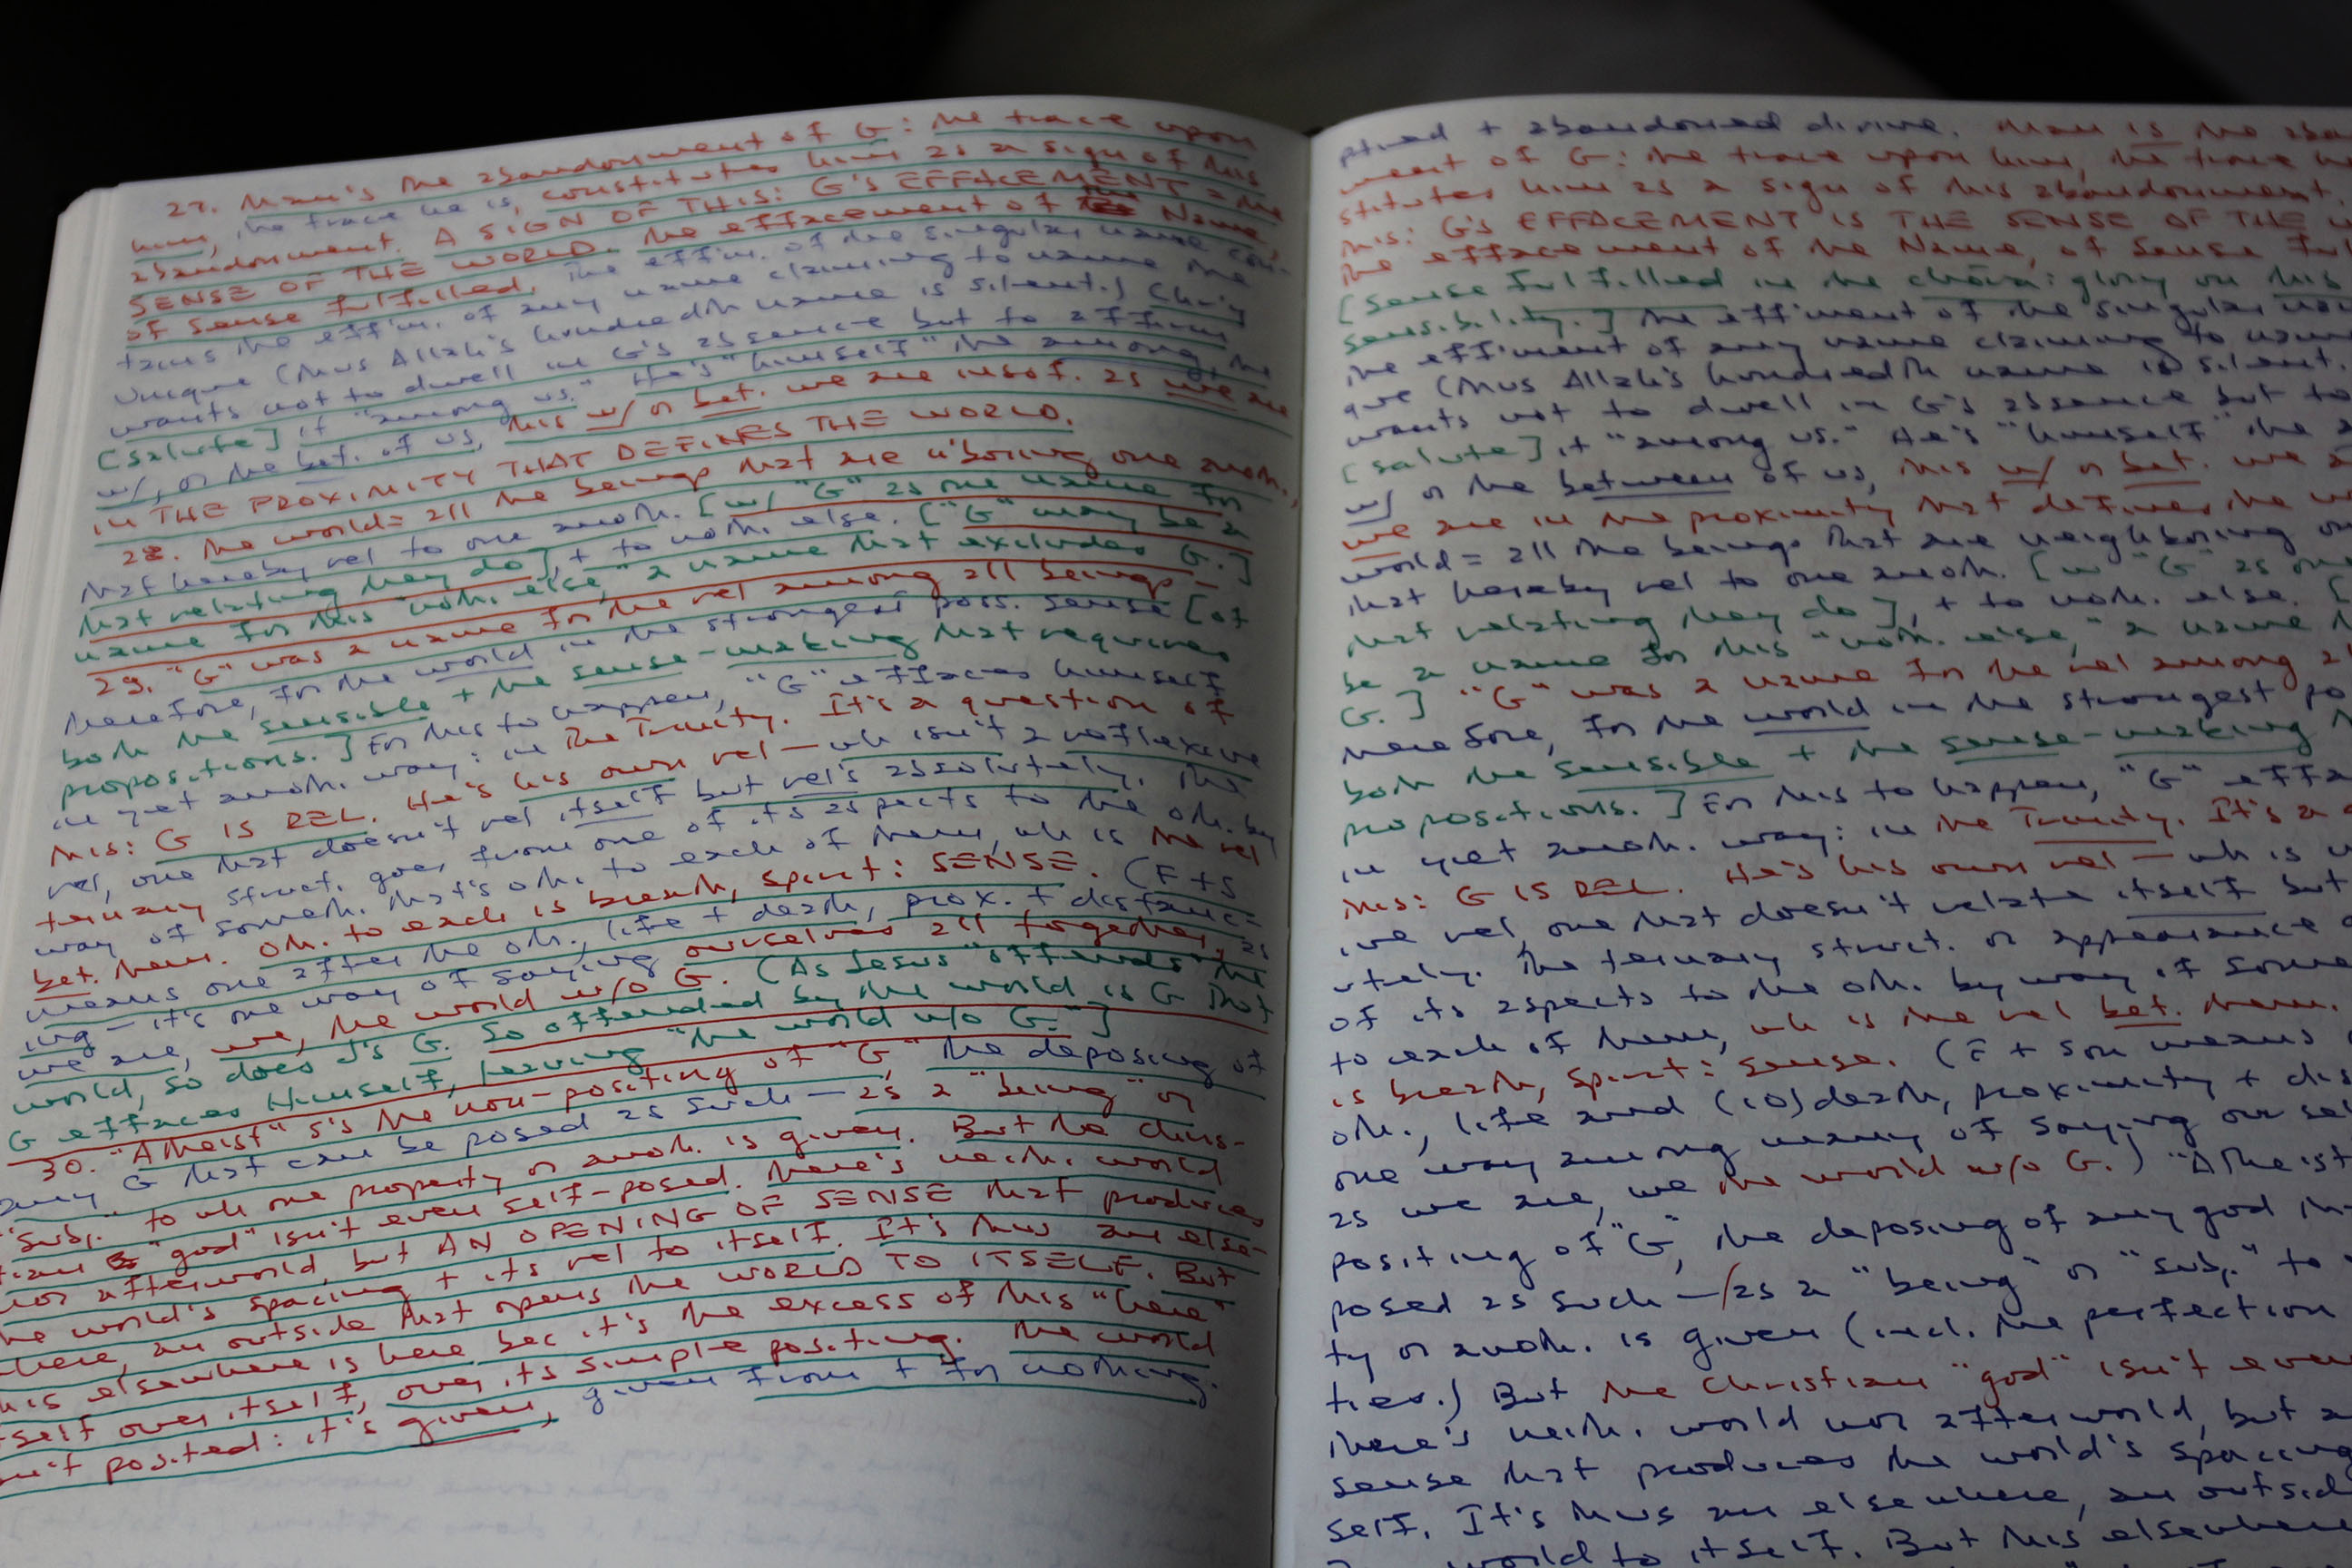 27. Man's the abandonment of G: the trace upon
him, the trace he is, constitutes him as a sign of this
abandonment. A SIGN OF THIS: G'S EFFACEMENT = the
SENSE OF THE WORLD. the effacement of the Name,
of sense fulfilled. The eff'm. of the singular name con-
tains the eff'm. of any name claiming to name the
unique (thus Allah's hundredth name is silent.) Chr'y
wants not to dwell in G's absence but to affirm
[salute] it "among us." He's "himself" the among, the
w/, or the bet. of us, this w/ or bet. we are insof. as we are
IN THE PROXIMITY THAT DEFINES THE WORLD.
28. the world = all the beings that are n'boring one anoth.,
that hereby rel to one anoth. [w/ "G" as one name for
that relating they do], + to noth. else. ["G" may be a
name for this "noth. else," a name that excludes G.]
29. "G" was a name for the rel among all beings -
therefore, for the world in the strongest poss. sense [of
both the sensible + the sense-making that requires
propositions.] For this to happen, "G" effaces himself
in yet anoth. way: in the Trinity. It's a question of
this: G IS REL. He's his own rel — wh isn't a reflexive
rel, one that doesn't rel itself but rel's absolutely. The
ternary struct. goes from one of its aspects to the oth. by
way of someth. that's oth. to each of them, wh is the rel
bet. them. Oth. to each is breath, spirit: SENSE. (F + S
means one after the oth., life + death, prox. + distanc-
ing — it's one way of saying ourselves all together, as
we are, we, the world w/o G. (As Jesus "offends" the
world, so does J's G. So offended by the world is G that
G effaces Himself, leaving "the world w/o G.")
30. "Atheist" s's the non-positing of "G," the deposing of
any G that can be posed as such — as a "being" or
"subj." to wh one property or anoth. is given. But the chris-
tian "god" isn't even self-posed. there's neith. world
nor afterworld, but AN OPENING OF SENSE that produces
the world's spacing + its rel to itself. It's thus an else-
where, an outside that opens the WORLD TO ITSELF. But
this elsewhere is here bec it's the excess of this "here"
itself over itself, over its simple positing. The world
isn't posited: it's given, given from + for nothing.
ptied + abandoned divine. Man is the aban
ment of G: the trace upon him, the trace h
stitutes him as a sign of this abandonment.
this: G'S EFFACEMENT IS THE SENSE OF THE
the effacement of the Name, of sense ful
[sense fulfilled in the chora: glory on this
sensibility.] the eff'ment of the singular na
the eff'ment of any name claiming to nam
que (thus Allah's hundredth name is silent.
wants not to dwell in G's absence but to
[salute] it "among us." He's "himself" the a
w/ or the between of us, this w/ or bet. we a
we are in the proximity that defines the w
world = all the beings that are neighboring o
that hereby rel to one anoth. [w "G" as one
that relating they do], + to noth. else. [
be a name for this "noth. else," a name
G.] "G" was a name for the rel among al
therefore, for the world in the strongest po
both the sensible + the sense-making
propositions.] For this to happen, "G" effa
in yet anoth. way: in the Trinity. It's a
this: G IS REL. He's his own rel — wh is n
ive rel, one that doesn't relate itself but
utely. The ternary struct. or appearance
of its aspects to the oth. by way of some
to each of them, wh is the rel bet. them.
is breath, spirit: sense. (F + Son means
oth., life and (10) death, proximity + dis
one way among many of saying our sel
as we are, we the world w/o G.) "Atheist
positing of "G," the deposing of any god th
posed as such — /as a "being" or "subj." to
ty or anoth. is given (incl. the perfection
ties.) But the Christian "god" isn't even
there's neith. world nor afterworld, but a
sense that produces the world's spacing
self. It's thus an elsewhere, an outsid
world to itself. But this elsewhere